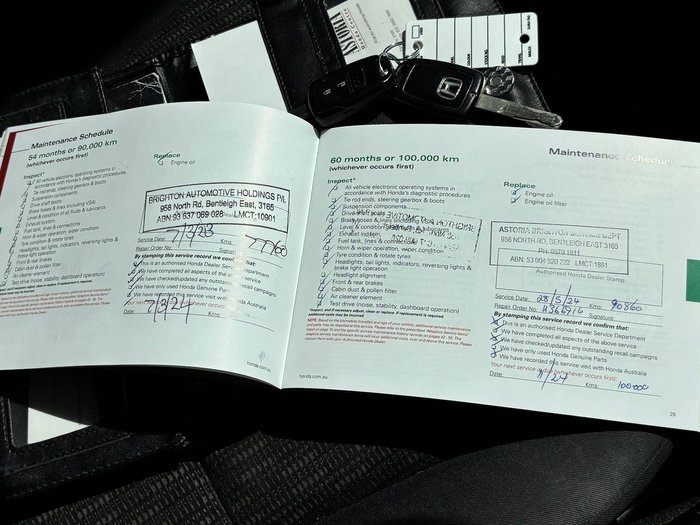 ASTORIA
Maintenance Schedule
54 months or 90,000 km
(whichever occurs first)
Inspect*
All vehicle electronic operating systems in
accordance with Honda's diagnostic procedures
Tie rod ends, steering gearbox & boots
Suspension components
Brake hoses & lines (including VSA)
Level & condition of all fluids & lubricants
Exhaust system
Fuel tank, lines & connections
Horn & wipers operation, wiper condition
Tyre condition & rotate tyres
Headlights, tail lights, indicators, reversing lights &
brake light operation
Front & rear brakes
Cabin dust & pollen filter
Air cleaner element
Test drive (noise, stability, dashboard operation)
Replace
Engine oil
BRIGHTON AUTOMOTIVE HOLDINGS P/L
958 North Rd, Bentleigh East, 3165
ABN: 93 637 069 026 LMCT: 10901
Service Date: 7/3/23 Kms:
Repair Order No.: Signature:
By stamping this service record we confirm that:
This is an authorised Honda Dealer Service Department
We have completed all aspects of the above service
We have checked/updated any outstanding recall campaigns
We have only used Honda Genuine Parts
We have recorded this service visit with Honda Australia
Date: 7/3/24
honda.com.au
60 months or 100,000 km
(whichever occurs first)
Maintenance Schedule
Inspect*
All vehicle electronic operating systems in
accordance with Honda's diagnostic procedures
Tie rod ends, steering gearbox & boots
Suspension components
Brake hoses & lines
Level & condition
Exhaust system
Fuel tank, lines & connections
Horn & wipers operation, wiper condition
Tyre condition & rotate tyres
Headlights, tail lights, indicators, reversing lights &
brake light operation
Headlight alignment
Front & rear brakes
Cabin dust & pollen filter
Air cleaner element
Test drive (noise, stability, dashboard operation)
*Inspect, and if necessary adjust, clean or replace. If replacement is required,
additional costs may be incurred.
Replace
Engine oil
Engine oil filter
ASTORIA BRIGHTON SERVICE DEPT
956 NORTH RD, BENTLEIGH EAST 3165
PH: 9579 1811
ABN: 53 004 520 222 LMCT 1851
Authorised Honda Dealer Stamp
Service Date: 28/5/24 Kms: 90860
Repair Order No.: Signature:
By stamping this service record we confirm that:
This is an authorised Honda Dealer Service Department
We have completed all aspects of the above service
We have checked/updated any outstanding recall campaigns
We have only used Honda Genuine Parts
We have recorded this service visit with Honda Australia
Your next service is due (whichever occurs first):
Date: 11/24 Kms: 100000
honda.com.au
29